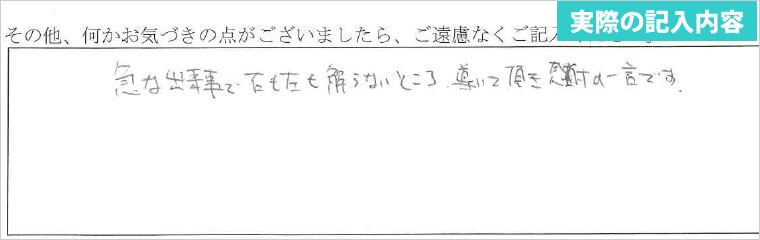 実際の記入内容
その他、何かお気づきの点がございましたら、ご遠慮なくご記入
急な出来事で右も左も解らないところ、導いて頂き感謝の一言です。